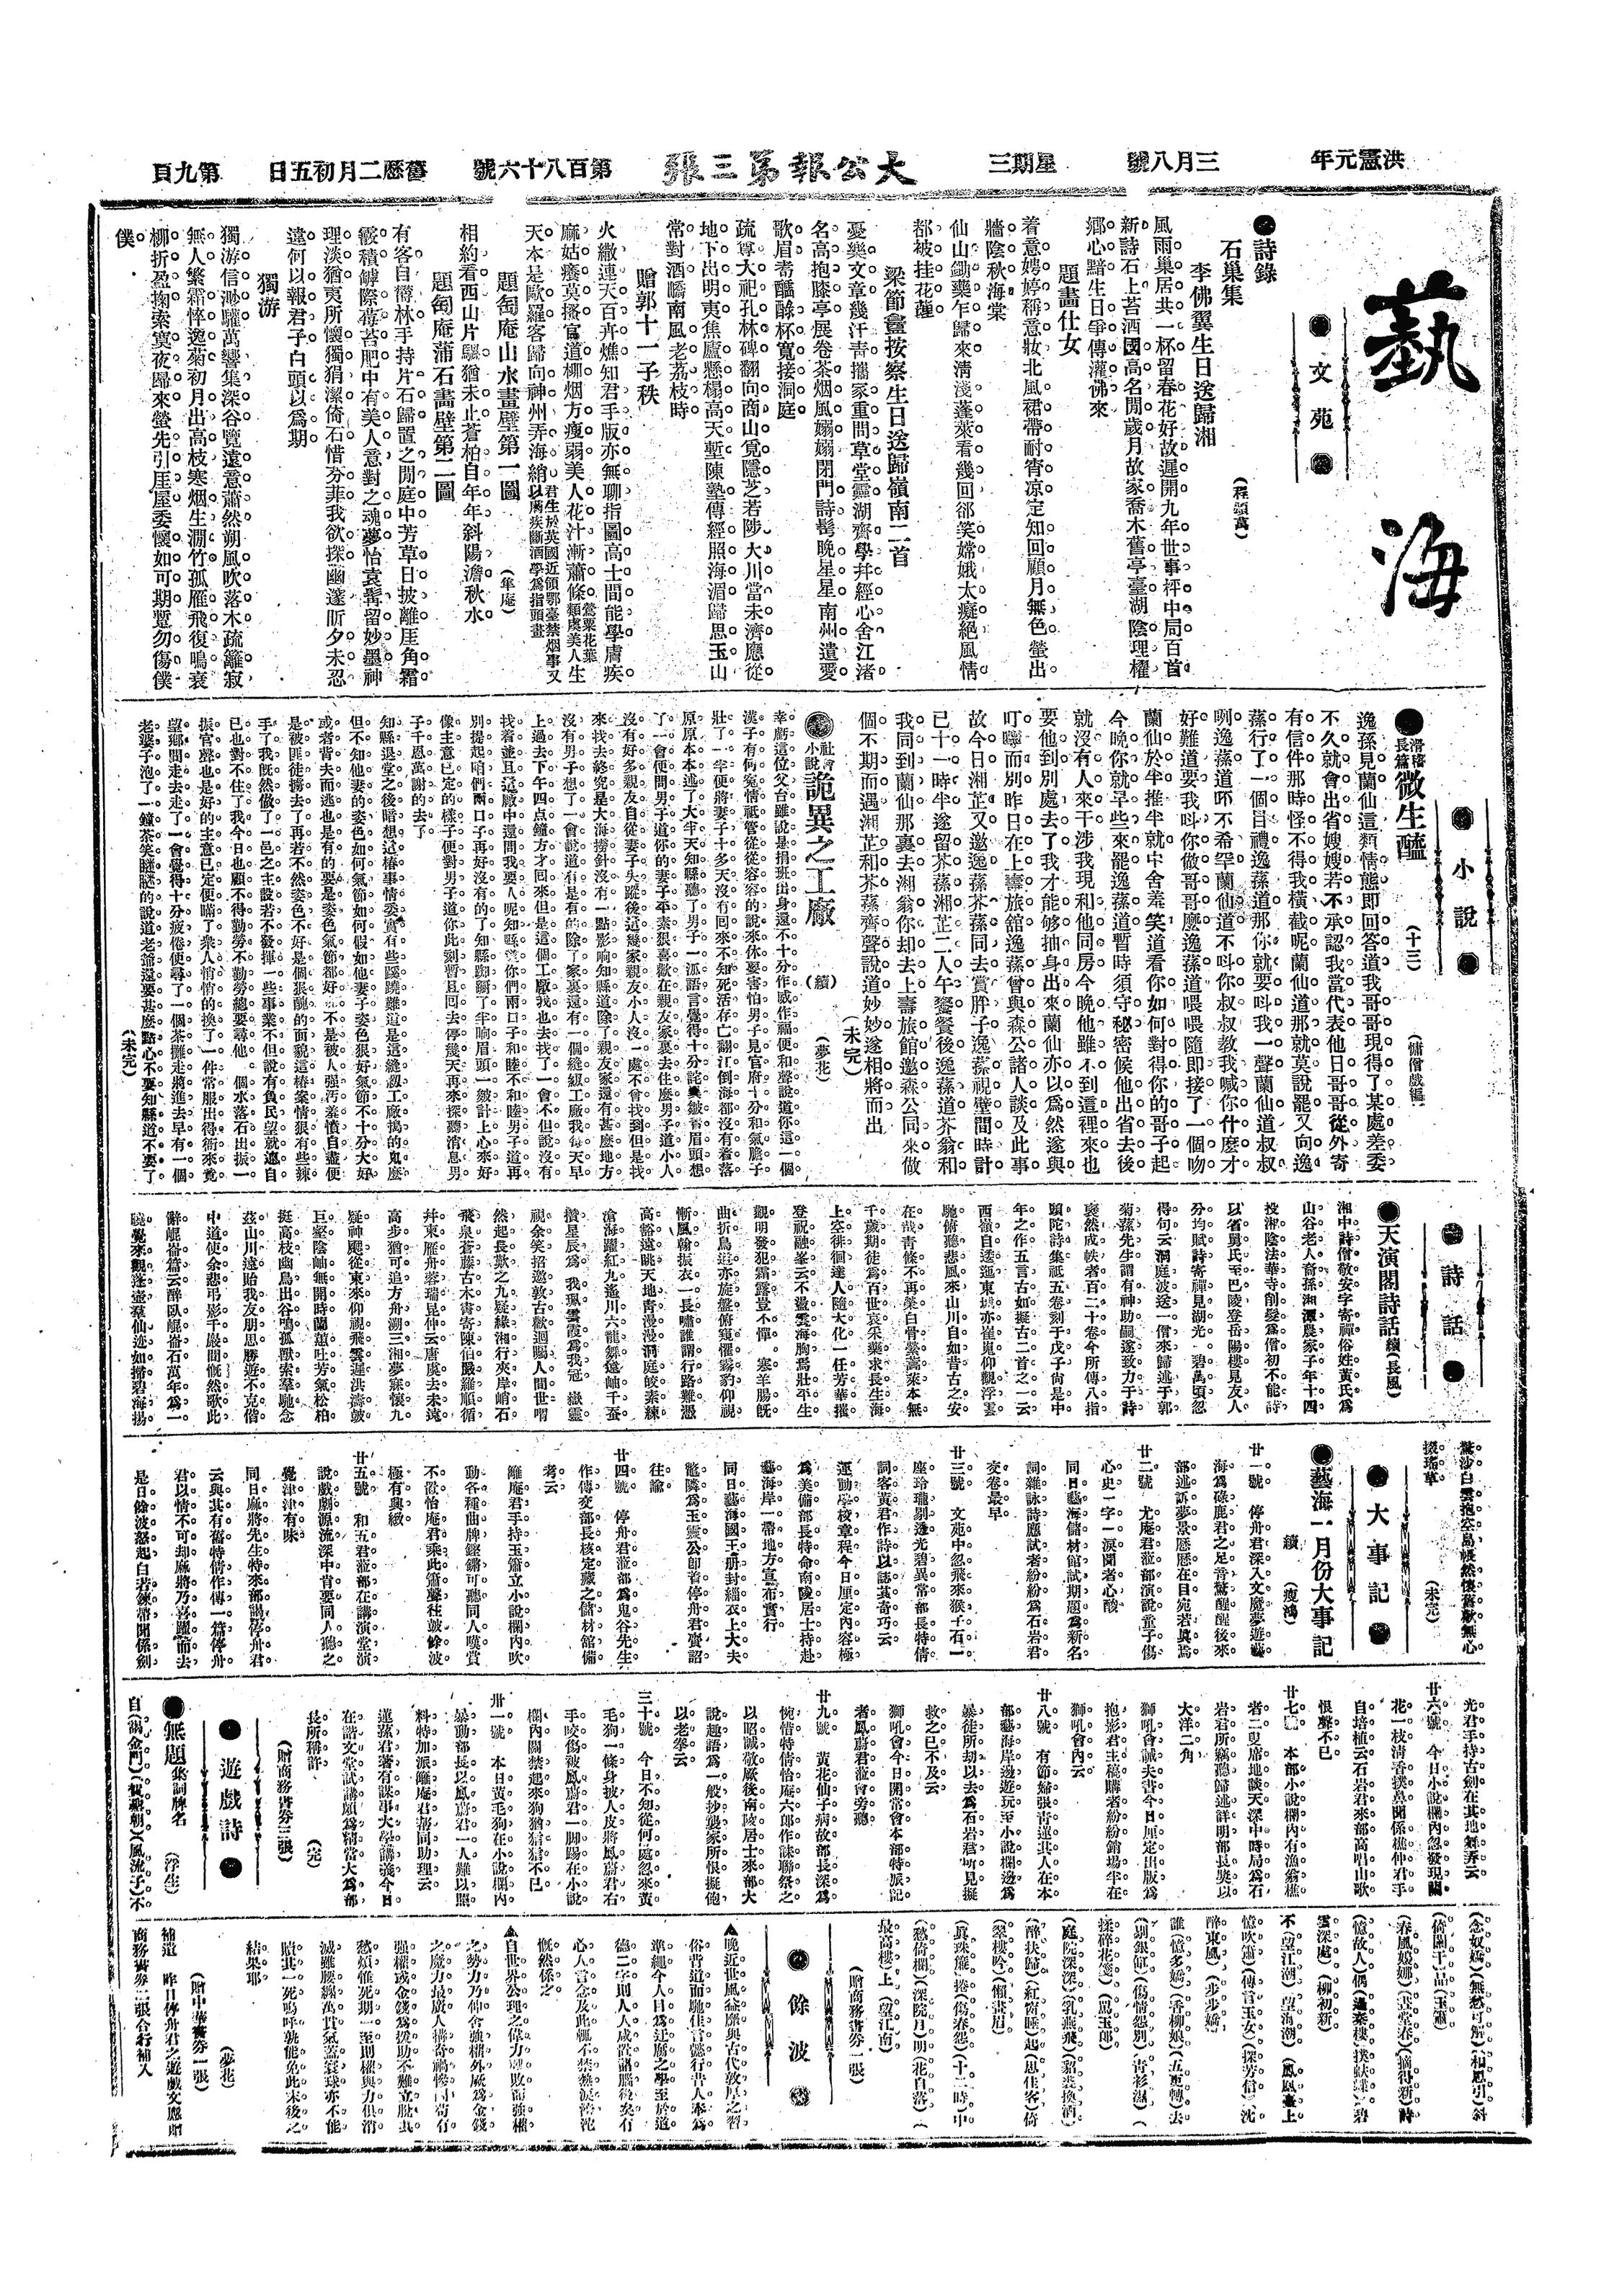 洪憲元年
三月八號
星期三
大公報第三張
第百八十六號
舊歷二月初五日
第九頁
藝海
文苑
●詩錄
石巢集 (程頌萬)
李佛翼生日送歸湘
風雨巢居共一杯留春花好故遲開九年世事枰中局百首
新詩石上苔酒國高名閒歲月故家喬木舊亭臺湖陰理櫂
鄉心黯生日爭傳灌佛來
題畫仕女
着意娉婷稱意妝北風裙帶耐宵凉定知回顧月無色螢出
牆陰秋海棠
仙山鋤藥乍歸來淸淺蓬萊看幾回郤笑嫦娥太癡絕風情
都被挂花催
梁節盦按察生日送歸嶺南二首
憂樂文章幾汗靑攜家重問草堂靈湖齊學幷經心舍江渚
名高抱膝亭展卷茶烟風嫋嫋閉門詩髩晚星星南州遺愛
歌眉耇醽醁杯寬接洞庭
疏尊大祀孔林碑翻向商山覓隱芝若陟大川當未濟應從
地下出明夷焦廬懸榻高天塹陳塾傳經照海湄歸思玉山
常對酒嶠南風老荔枝時
贈郭十一子秩
火繖連天百卉燋知君手版亦無聊指圖高士間能學膚疾
麻姑癢莫搔官道柳烟方瘦弱美人花汁漸蕭條鶯粟花葉類虞美人生
天本是歐羅客歸向神州弄海綃君生於英國近領鄂臺禁烟事又以瘍疾斷酒學爲指頭畫
題匋庵山水畫壁第一圖 (隼庵)
相約看西山片驅猶未止蒼柏自年年斜陽澹秋水
題匋庵蒲石畵壁第二圖
有客自僊林手持片石歸置之閒庭中芳草日披離厓角霜
骰積罅際莓苔肥中有美人意對之魂夢怡袁髯留妙墨神
理淡猶夷所懷獨狷潔倚石惜芬菲我欲探幽邃昕夕未忍
違何以報君子白頭以爲期
獨游
獨游信渺驩萬響集深谷覽遠意蕭然朔風吹落木疏籬寂
無人繁霜悴逸菊初月出高枝寒烟生澗竹孤雁飛復鳴哀
柳折盈掬索寞夜歸來螢先引厓屋委懷如可期蹔勿傷僕
僕
小說
●滑稽長篇 微生醯 (十三) (慵僧戲編)
逸孫見蘭仙這類情態即回答道我哥哥現得了某處差委
不久就會出省嫂嫂若不承認我當代表他日哥哥從外寄
有信件那時怪不得我橫截呢蘭仙道那就莫說罷又向逸
蓀行了一個呂禮逸蓀道那你就要呌我一聲蘭仙道叔叔
咧逸蓀道吥不希罕蘭仙道不呌你叔叔敎我喊你什麽才
好難道要我呌你做哥哥麽逸蓀道喂喂隨即接了一個吻
蘭仙於半推半就中舍羞笑道看你如何對得你的哥子起
今晚你就早些來罷逸蓀道暫時須守秘密候他出省去後
就沒有人來干涉我現和他同房今晚他雖不到這裡來也
要他到別處去了我才能够抽身出來蘭仙亦以爲然遂與
叮嚀而別昨日在上壽旅舘逸蓀曾與森公諸人談及此事
故今日湘芷又邀逸蓀芥蓀同去賞胖子逸蓀視壁間時計
已十一時半遂留芥蓀湘芷二人午饗餐後逸蓀道芥翁和
我同到蘭仙那裏去湘翁你却去上壽旅館邀森公同來做
個不期而遇湘芷和芥蓀齊聲說道妙妙遂相將而出
(未完)
社會小說 詭異之工廠 (續) (夢花)
幸虧這位父台雖說是捐班出身還不十分作威作福便和聲說道你這一個
漢子有何寃情祗管從從容容的說來你要害怕男子見官府十分和氣膽子
壯了一半便將妻子十多天沒有回來不知死活存亡翻江倒海都沒有着落
原原本本述了大半天知縣聽了男子一派語言覺得十分詫異皺着眉頭想
了一會便問男子道你的妻子平素狠喜歡在親友家裏去住麽男子道小人
沒有好多親友自從妻子失蹤後這幾家親友小人沒一處不曾找到但是找
來找去終究是大海撈針沒有一點影响知縣道除了親友家還有甚麽地方
沒有男子想了一會說道有是有的除了家裏還有一個縫紉工廠我每天早
上過去下午四点鐘方才回來但是這個工廠我也去找了一會不但說沒有
找着並且這廠中還問我要人呢知縣道你們兩口子和睦不和睦男子道再
別提起咱們兩口子再好沒有的了知縣躊躇了半响眉頭一皺計上心來好
像主意已定的樣子便對男子道你此刻暫且回去停幾天再來探聽消息男
子千恩萬謝的去了
知縣退堂之後暗想這樁事情委實有些蹊蹺難道是這縫紉工廠搗的鬼麽
但不知他妻的姿色如何氣節如何假如他妻子姿色狠好氣節不十分大好
或者背夫而逃也是有的要是姿色氣節都好不是被人强汚羞憤自盡便
是被匪徒擄去了再若不然姿色不好是個狠醜的面貌這樁案情狠有些辣
手了我旣然做了一邑之主設若不發揮一些事業不但說有負民望就連自
己也對不住了我今日也顧不得勤勞不勤勞總要尋他一個水落石出振一
振官聲也是好的主意已定便瞞了衆人悄悄的換了一件常服出得衙來竟
望鄉間走去走了一會覺得十分疲倦便尋了一個茶攤走將進去早有一個
老婆子泡了一鐘茶笑瞇瞇的說道老爺還要甚麽點心不要知縣道不要了
(未完)
詩話
●天演閣詩話 續 (長風)
湘中詩僧敬安字寄禪俗姓黃氏爲
山谷老人裔孫湘潭農家子年十四
投湘陰法華寺削髮爲僧初不能詩
以省舅氏至巴陵登岳陽樓見友人
分均賦詩寄禪見湖光一碧萬頃忽
得句云洞庭波送一僧來歸述于郭
菊蓀先生謂有神助嗣遂致力于詩
裒然成帙者百二十卷今所傳八指
頭陀詩集祗五卷刻于戊子尙是中
年之作五言古如擬古二首之一云
西嶺自逶迤東城亦崔嵬仰觀浮雲
馳俯聽悲風來山川自如昔古之安
在哉靑條不再榮白骨縈蒿萊本無
千歲期徒爲百世哀采藥求長生海
上空徘徊達人隨大化一任芳華摧
登祝融峯云不盪雲海胸焉壯平生
觀明發犯霜露豈不憚一寒羊腸旣
曲折鳥逕亦旋盤俯窺懼霧豹仰視
漸風翰振衣一長嘯誰謂行路難憑
高豁遠眺天地靑漫漫洞庭皎素練
滄海躍紅丸遙川六龍舞遠岫千蠶
攢星辰爲我珮雲霞爲我冠嶽靈
視余笑招邀敦古歡迴矚人間世喟
然起長歎之九疑緣湘行夾岸峭石
飛泉蒼藤古木書寄陳伯嚴羅順循
幷東雁舟蓉瑞昆仲云唐虞去未遠
高步猶可追方舟溯三湘夢寐懷九
疑神飈從東來仰視飛雲遲洪濤皷
巨壑陰岫無開時蘭蕙吐芳氣松柏
挺高枝幽鳥出谷鳴孤獸索羣馳念
茲山川遠貽我友朋思勝遊不克偕
中道使余悲弔影千巖間慨然歌此
辭崑崙篇云醉臥崑崙石萬年爲一
曉覺來觀蓬壺羣仙迹如掃碧海揚
驚沙白雲抱空島悵然懷舊歡無心
掇瑤草 (未完)
大事記
●藝海一月份大事記
續 (瘦鴻)
廿一號 停舟君深入文魔夢遊藝
海爲碌鹿君之足音驚醒醒後來
部述訴夢景歷歷在目宛若眞焉
廿二號 尤庵君蒞部演說童子傷
心史一字一淚聞者心酸
同日藝海儲材館試期題爲新名
詞雜詠詩應試者紛紛爲石岩君
交卷最早
廿三號 文苑中忽飛來猴子石一
座玲瓏剔透光碧異常部長特倩
詞客黃君作詩以誌其奇巧云
運動學校章程今日厘定內容極
爲美備部長特命南陵居士持赴
藝海岸一帶地方宣布實行
同日藝海國王册封緇衣上大夫
籠隣爲玉靈公卽着停舟君賫詔
往諭
廿四號 停舟君蒞部爲鬼谷先生
作傳交部長核定藏之儲材館備
考云
離庵君手持玉簫立小說欄內吹
動各種曲牌鏗鏘可聽同人嘆賞
不置怡庵君乘此簫聲往皷餘波
極有興緻
廿五號 和五君蒞部在講演堂演
說戲劇源流深中肯要同人聽之
覺津津有味
同日麻將先生特來部謁停舟君
云與其有舊特倩作傳一篇停舟
君以情不可却麻將乃喜躍而去
是日餘波怒起白若鍊帶聞係劍
光君手持古劍在其地舞弄云
廿六號 今日小說欄內忽發現蘭
花一枝淸香撲鼻聞係樵仲君手
自培植云石岩君來部高唱山歌
恨聲不已
廿七號 本部小說欄內有漁翁樵
者二叟席地談天深中時局爲石
岩君所竊聽歸述詳明部長奬以
大洋二角
獅吼會誠夫書今日厘定出版爲
抱影君主稿購者紛紛銷塲半在
獅吼會內云
廿八號 有節婦張靑蓮其人在本
部藝海岸邊遊玩至小說欄邊爲
暴徒所刧以去爲石岩君所見擬
救之已不及云
獅吼會今日開常會本部特派記
者鳳蔚君蒞會旁聽
廿九號 黃花仙子病故部長深爲
惋惜特倩怡庵六郎作誄聯祭之
以昭誠敬嚴後南陵居士來部大
說趣語爲一般抄襲家所恨擬飽
以老拳云
三十號 今日不知從何處忽來黃
毛狗一條身披人皮將鳳蔚君右
手咬傷被鳳蔚君一脚踢在小說
欄內關禁起來狗猶狺狺不已
卅一號 本日黃毛狗在小說欄內
暴動部長以鳳蔚君一人難以照
料特加派離庵君帮同助理云
蓮蓀君著有謀事大學講義今日
在諧文堂試講頗爲精當大爲部
長所稱許 (完)
(贈商務書券三張)
遊戲詩
●無題 集詞牌名 (浮生)
自(謁金門)(賀聖朝)(風流子)不
(念奴嬌)(無愁可解)(相思引)斜
(倚闌干)品(玉簫)
(春風嬝娜)(畫堂春)(摘得新)詩
(憶故人)偶(過秦樓)(撲蝴蝶)碧
雲深處(柳初新)
不(望江潮)望海潮)(鳳凰臺上
憶吹簫)(傳言玉女)(探芳信)沈
醉(東風)(步步嬌)
誰(憶多嬌)(香柳娘)(五更轉)去
(別銀缸)(傷情怨別)(靑衫濕)(
揉碎花箋)(思玉郎)
(庭院深深)(乳燕飛)(貂裘換酒)
(醉扶歸)(紅窗睡)起(思佳客)倚
(翠樓吟)(懶畫眉)
(眞珠簾)捲(傷春怨)(十二時)中
(愁倚欄)(深院月)明(花自落)(
最高樓)上(望江南)
(贈商務書券一張)
餘波
▲晚近世風益靡與古代敦厚之習
俗背道而馳佳言懿行昔人奉爲
準繩今人目爲迂腐之學至於道
德二字則人人成置諸腦後矣有
心人言念及此輒不禁熱淚滂沱
慨然係之
▲自世界公理之偉力剉敗而强權
之勢力乃伸舍强權外厥爲金錢
之魔力最廣人搆奇禍慘中苟有
强權或金錢爲援助不難立脫其
愁煩惟死期一至則權與力俱消
滅雖腰纏萬貫氣蓋寰球亦不能
贖其一死嗚呼孰能免此末後之
結果耶 (夢花)
(贈中華書券一張)
補遺 昨日停舟君之遊戲文應贈
商務書券二張合行補入